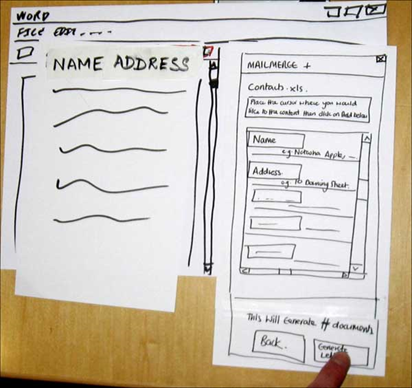 WORD
FILE EDIT
NAME ADDRESS
MAILMERGE +
Contacts.xls.
Place the cursor where you would
like to the content then click on field below
Name
eg Natasha Apple, ...
Address
eg. 10 Downing Street
This Will Generate # documents
Back.
Generate